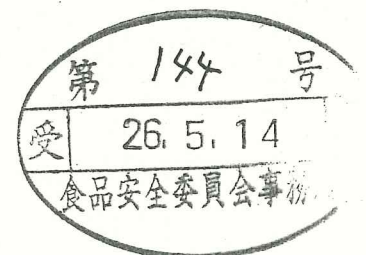 第 144 号
受 26.5.14
食品安全委員会事務